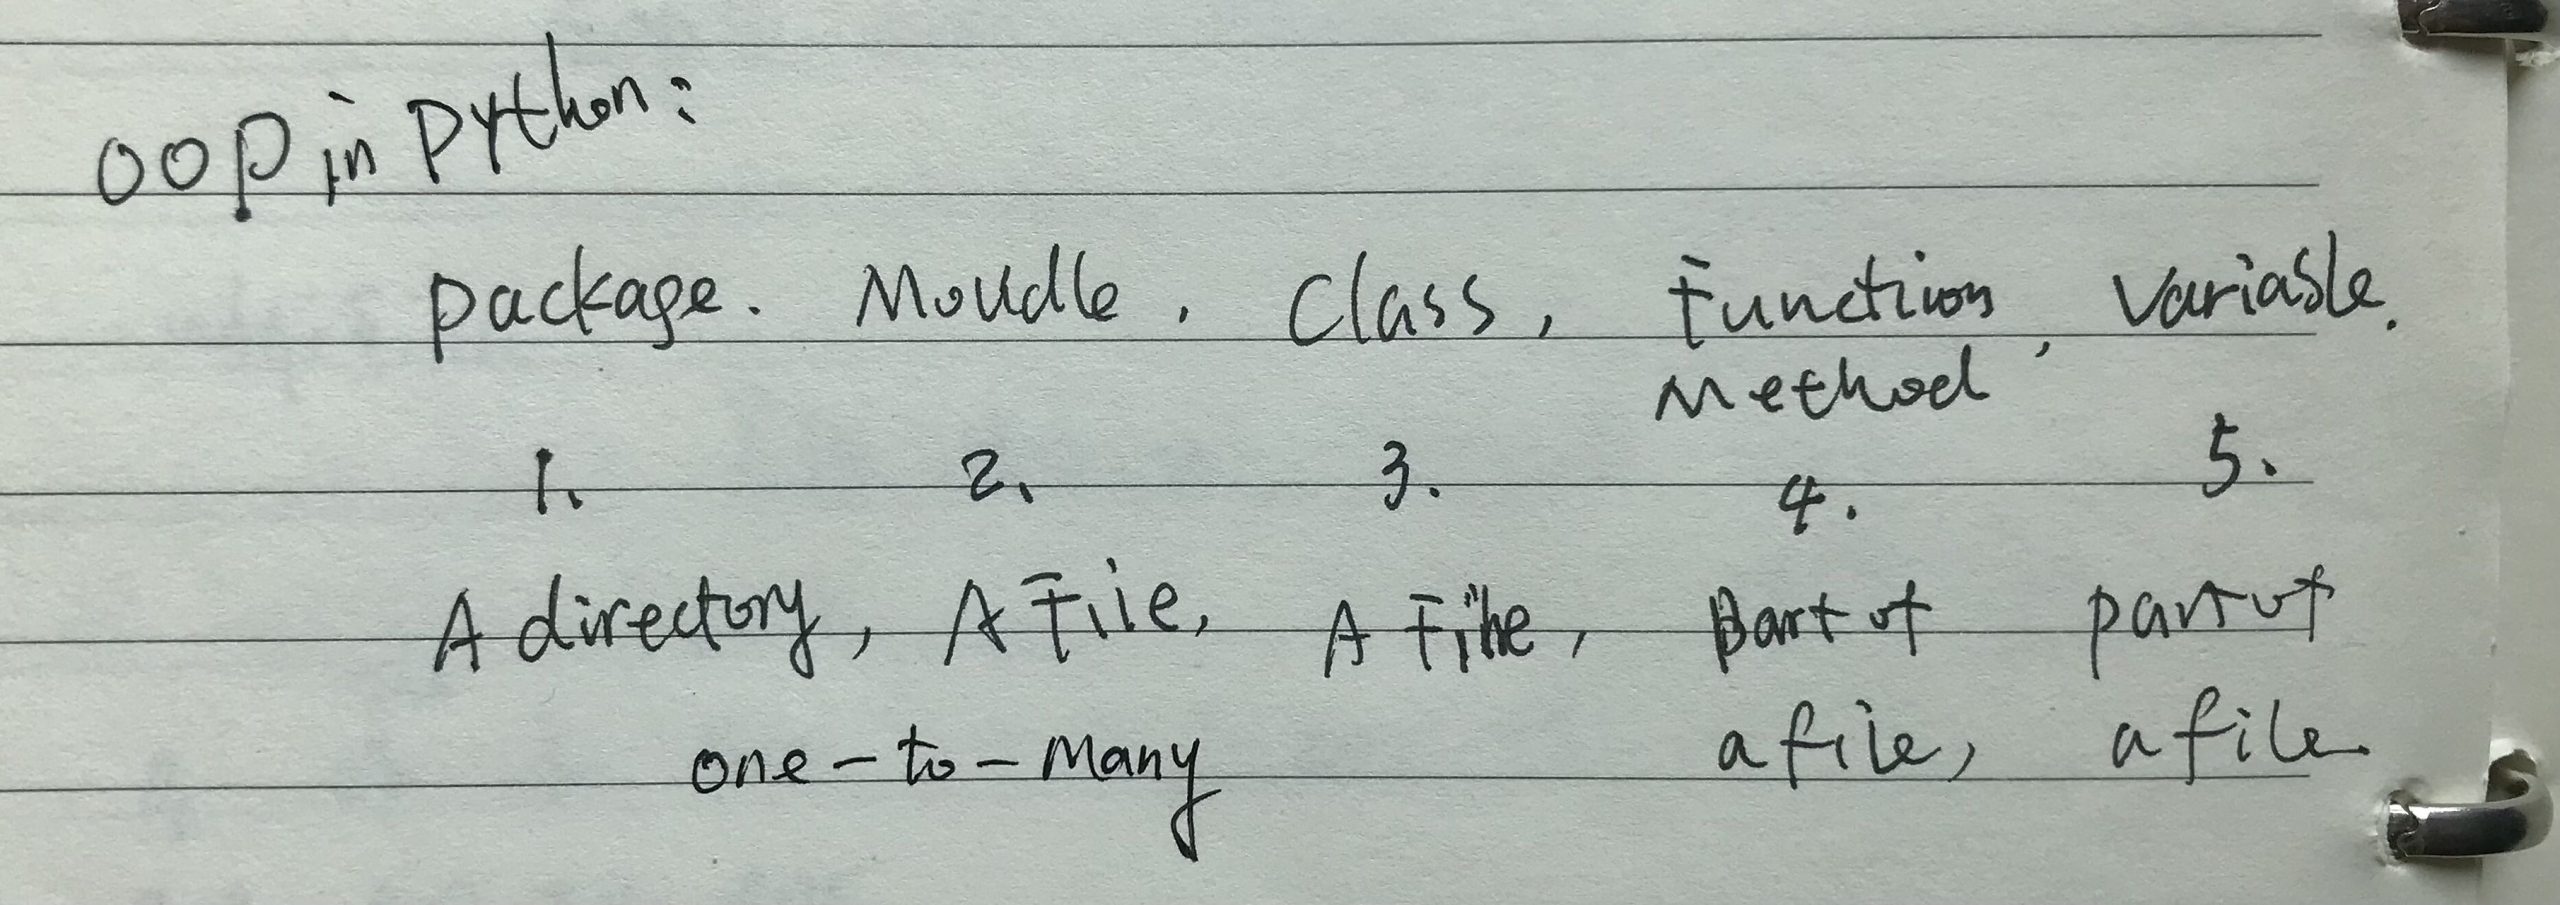 OOP in Python:
package. Moudle, Class, Function, Variable.
Method
1. 2. 3. 4. 5.
A directory, A File, A File, Part of part of
one-to-many a file, a file